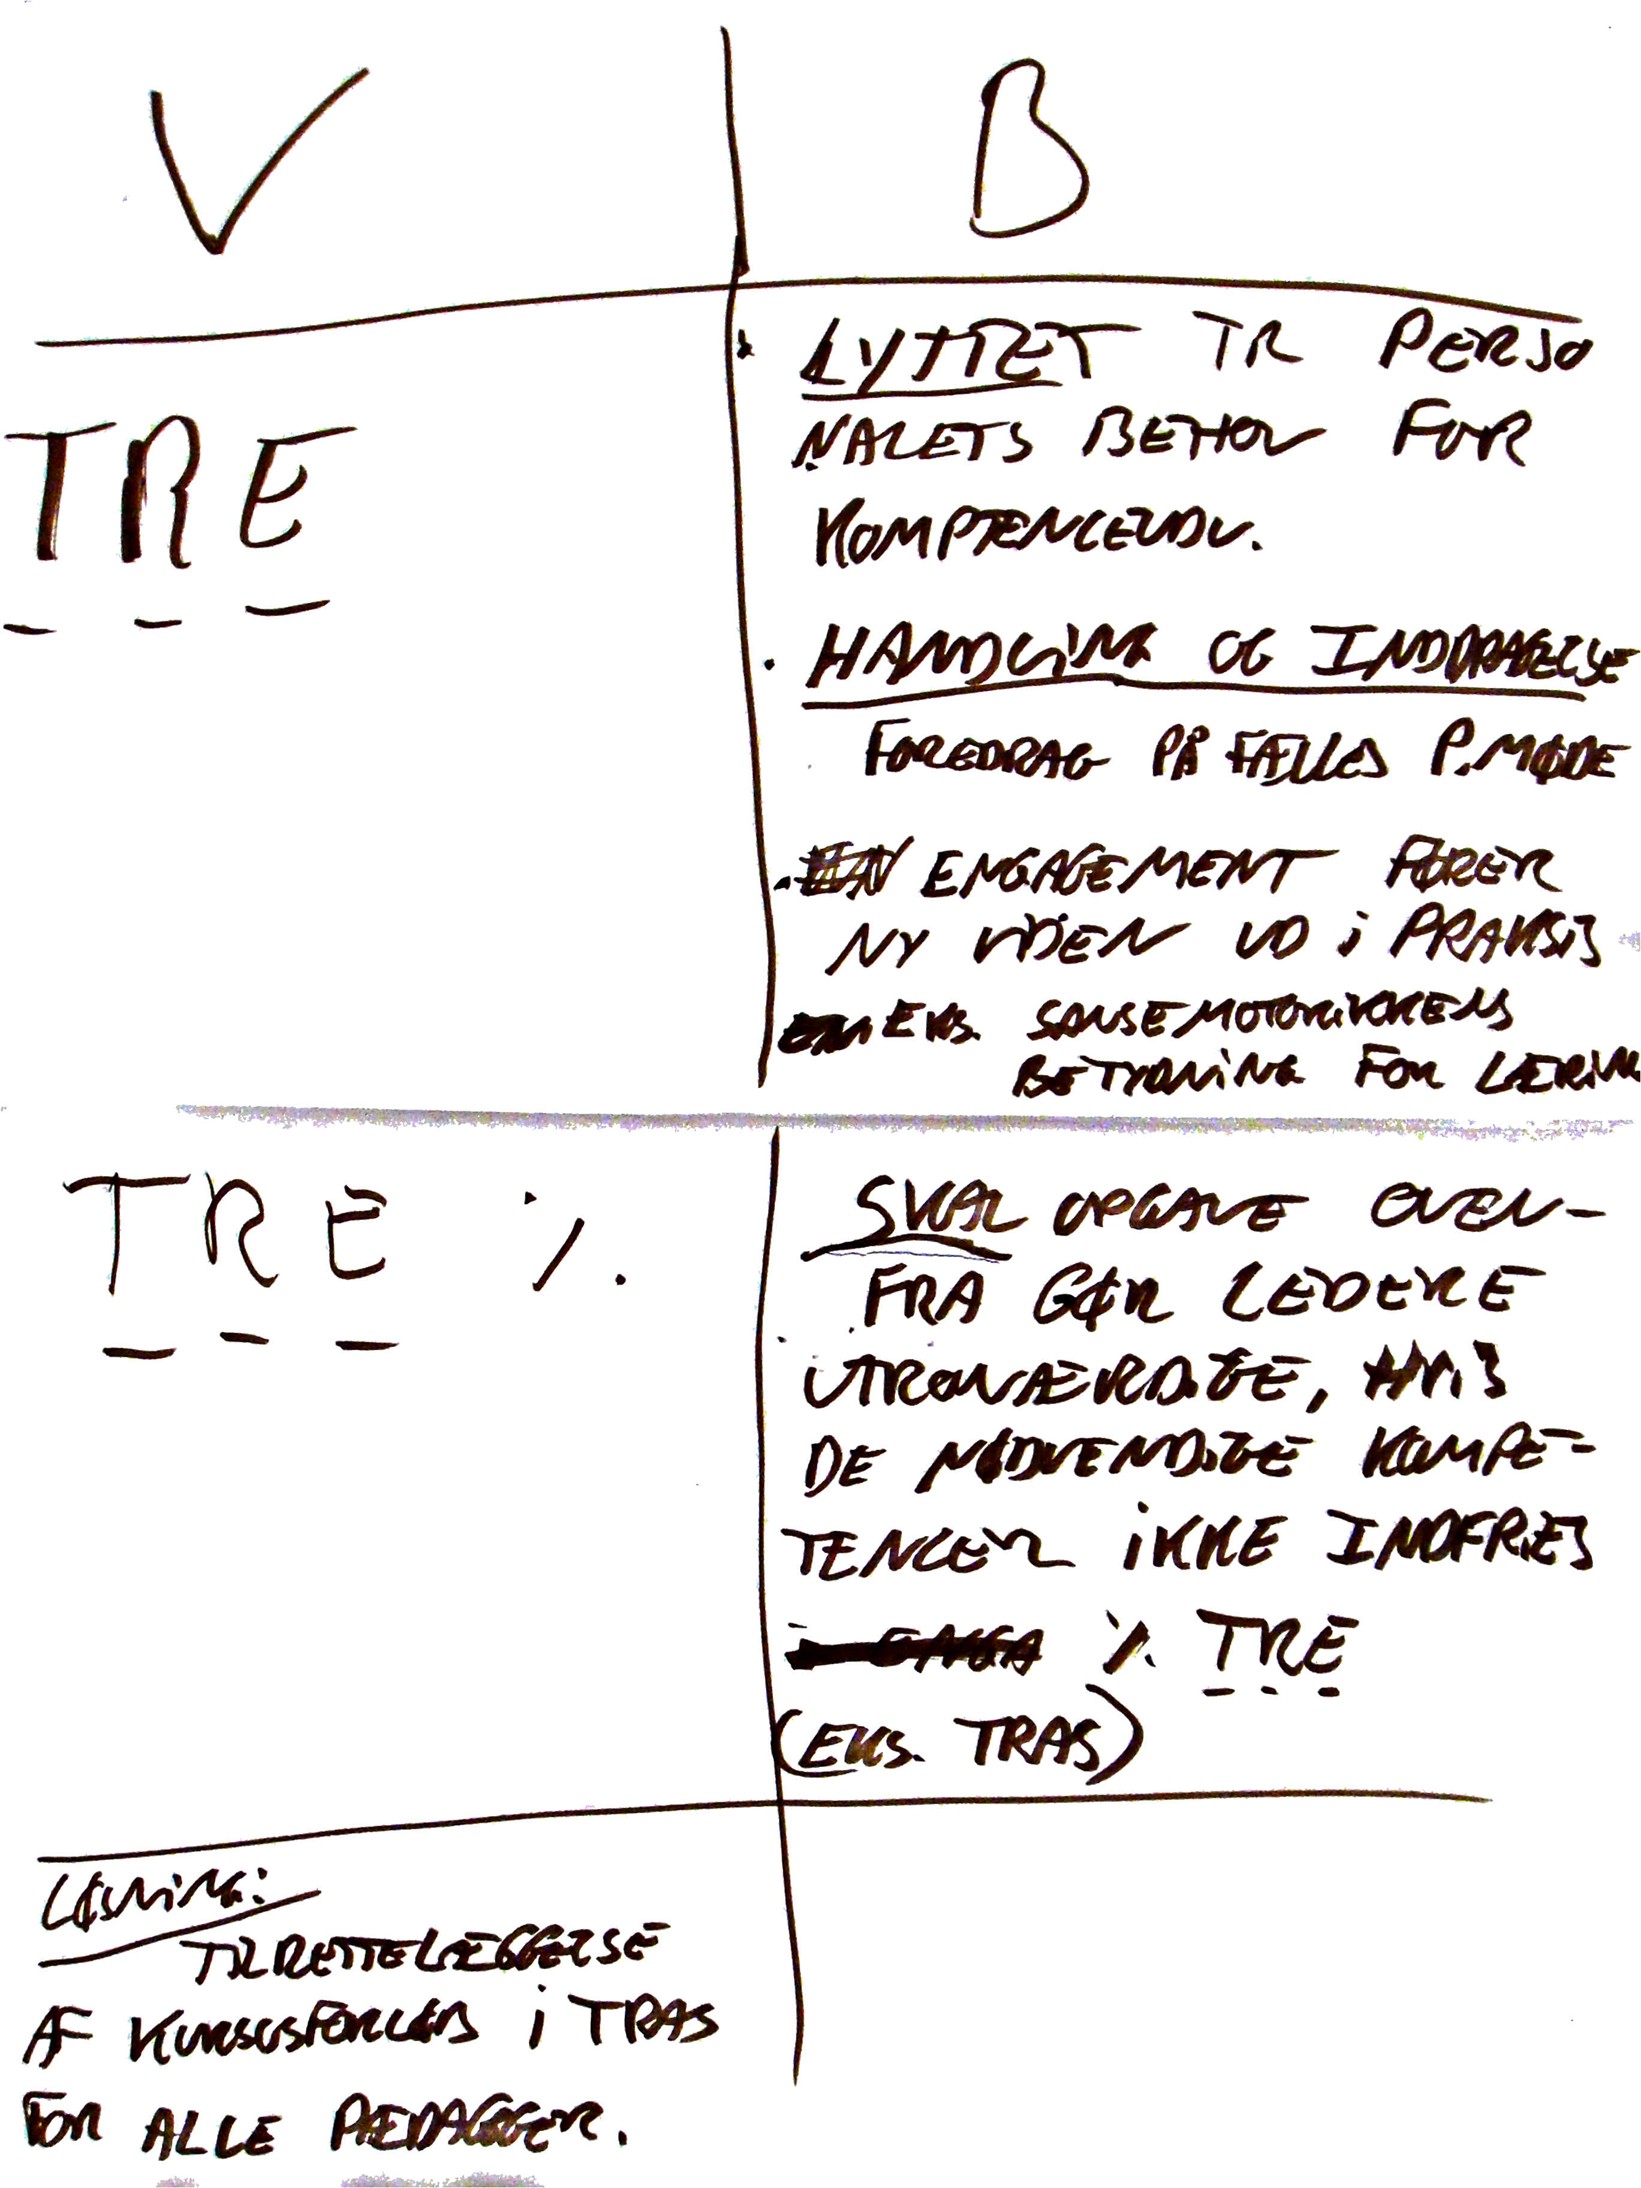 V
B
TRE
• LYTTET TR PERSO
NALETS BEHOV FOR
KOMPTENCEUDV.
• HANDLING OG INDDRAGELSE
FOREDRAG PÅ FÆLLES P.MØDE
• ENGAGEMENT FØRER
NY VIDEN UD i PRAKSIS
EKS. SANSEMOTORIKKENS
BETYDNING FOR LÆRING
TRE %.
SKAL OPGAVE OVEN-
FRA GØR LEDERE
UTROVÆRDIGE, HVIS
DE NØDVENDIGE KOMPE-
TENCER iKKE INDFRIES
%. TRE
(EKS. TRAS)
LØSNING:
TILRETTELÆGGELSE
AF KURSUSFORLØB i TRAS
FOR ALLE PÆDAGOGER.